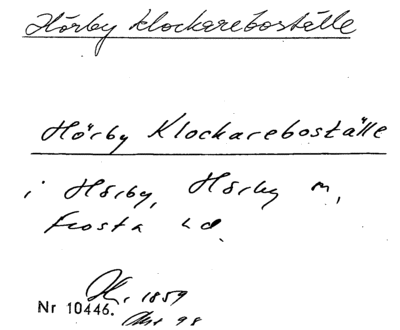 Hörby Klockareboställe
Hörby Klockareboställe
i Hörby, Hörby m,
Frosta hd.
1859
Nr 10446.
98